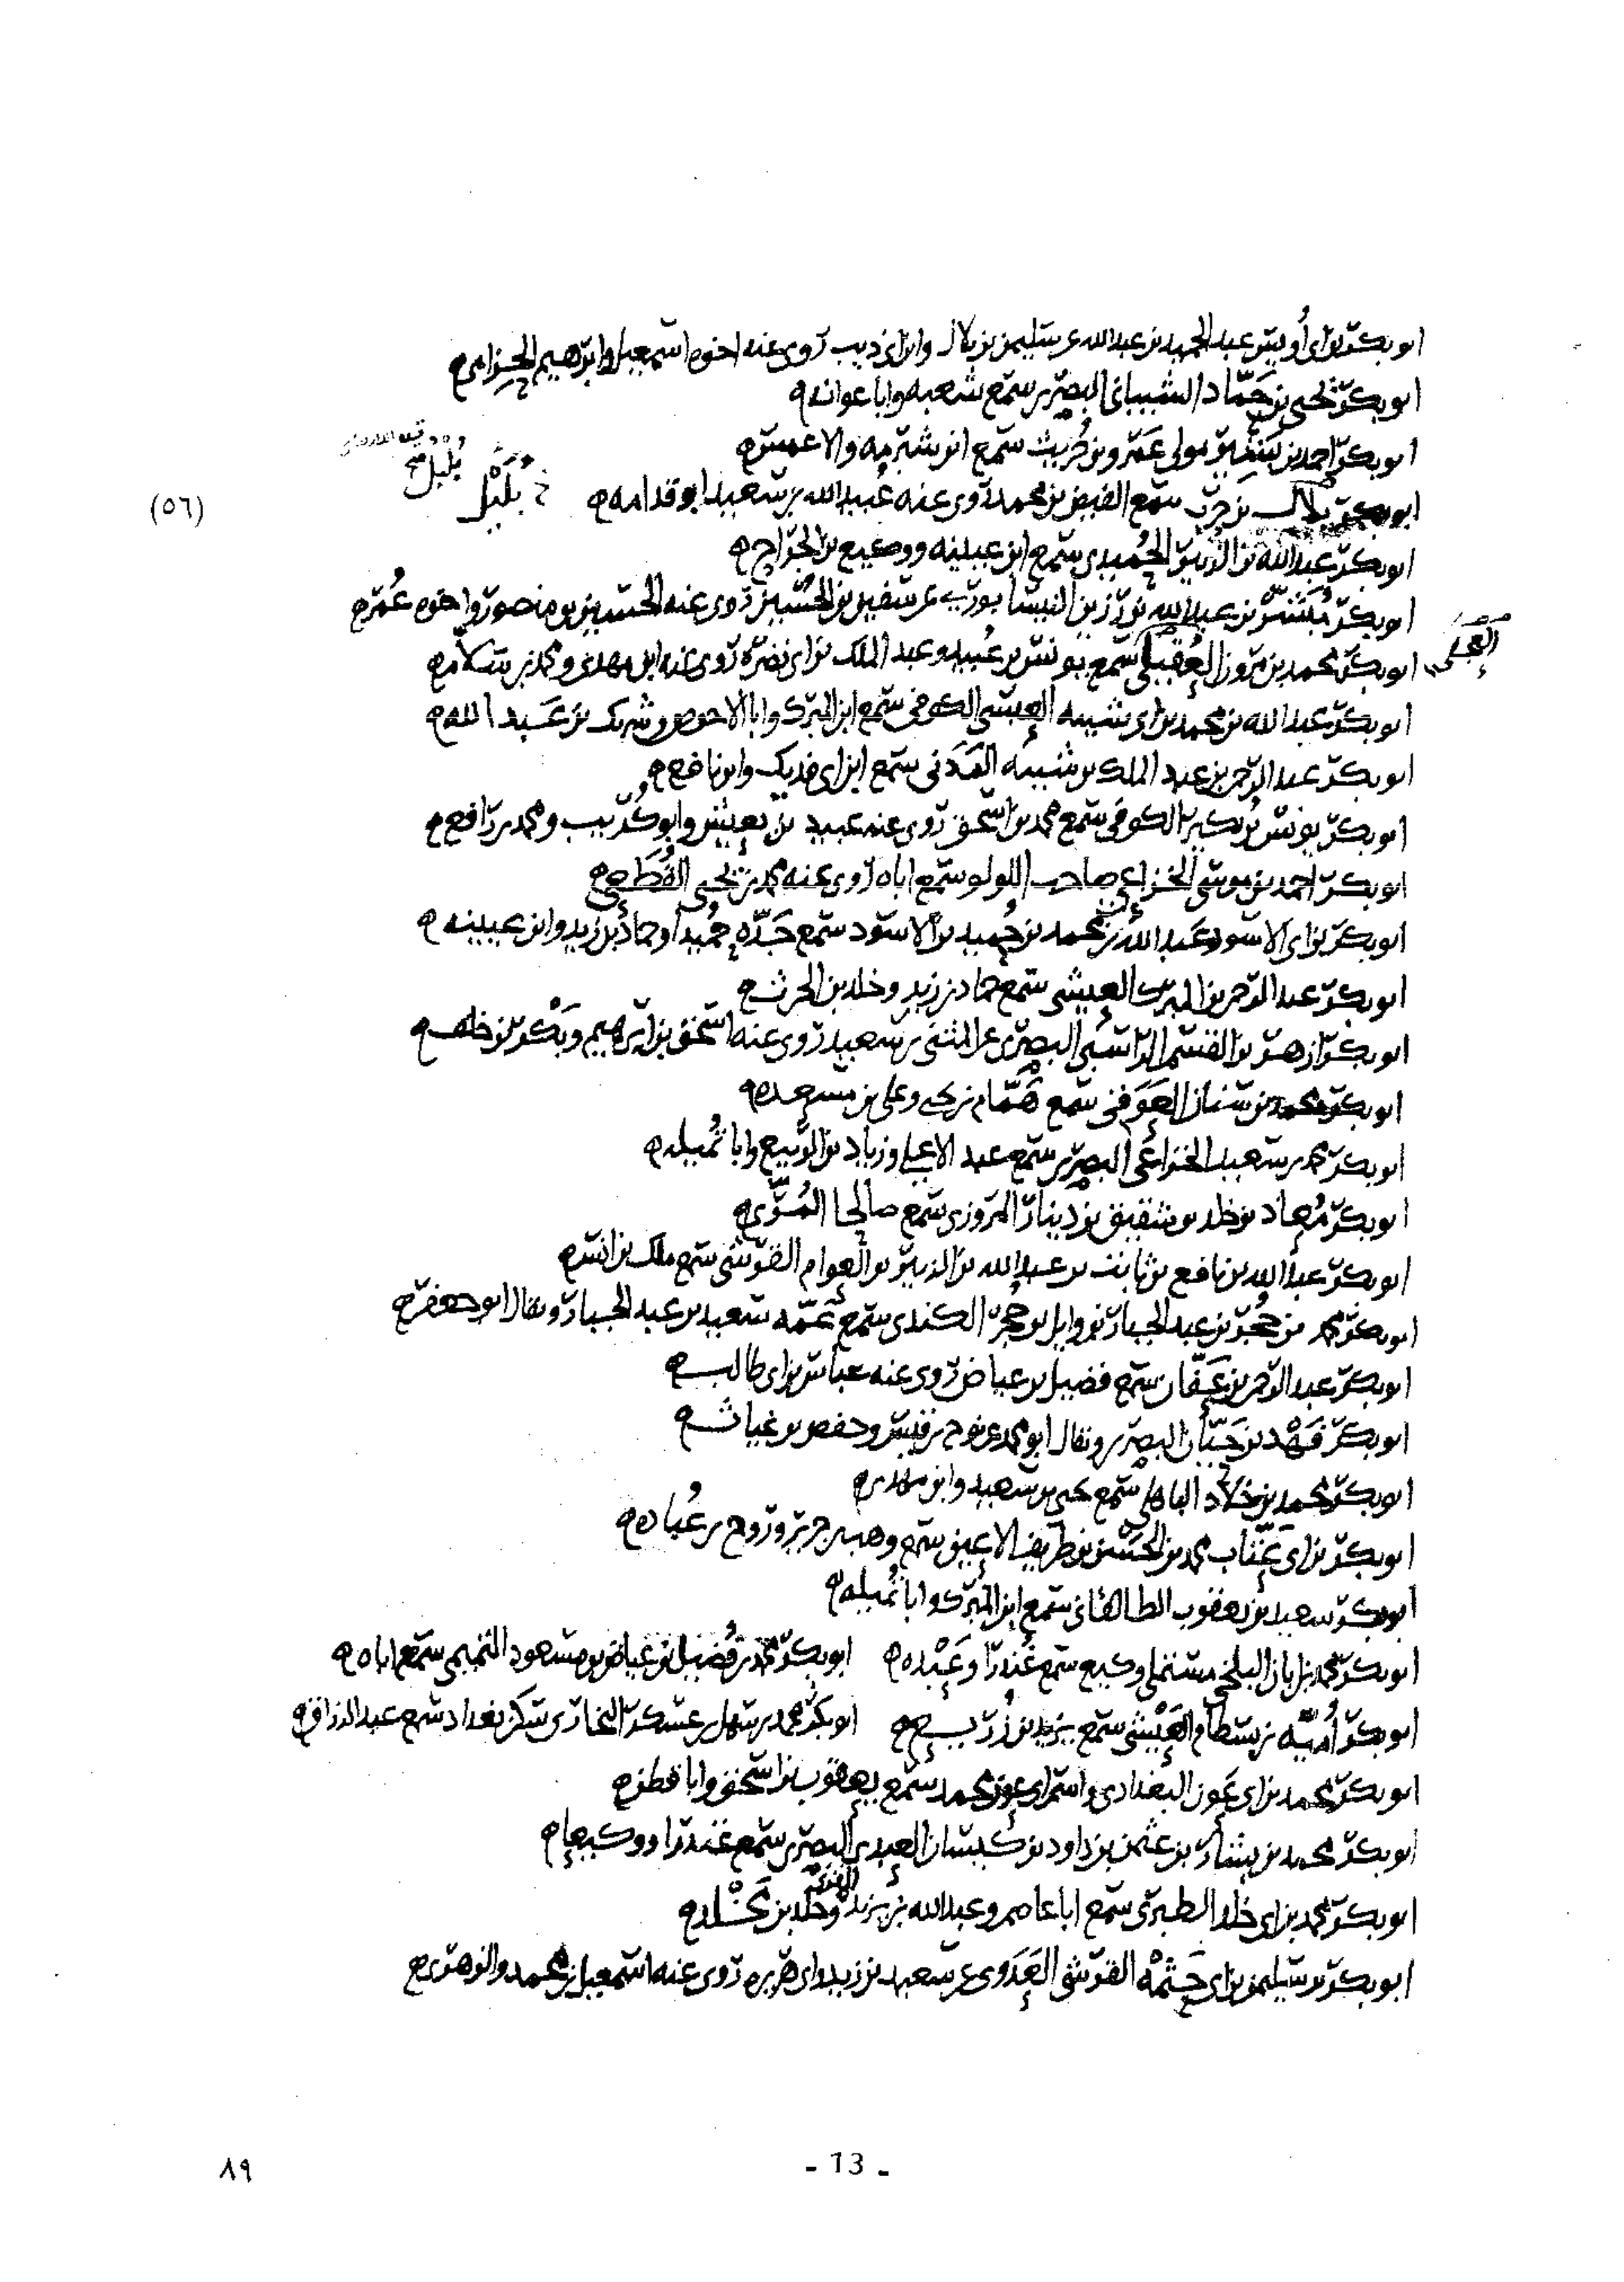 ابو بكر بن ابى أويس عبد الحميد بن عبد الله عن سليمن بن بلال وابن ابى ذيب روى عنه اخوه اسمعيل وابرهيم الحزامى
ابو بكر يحيى بن حَمَّاد الشيبانى البصرى سمع شعبه وابا عوانه
ابو بكر احمد بن بشير مولى عَمرو بن حُريث سمع ابن شبرمه والاعمش
ابو بكر بلال بن سمع الفيض بن محمد روى عنه عُبيد الله بن سعيد ابو قدامه خ بُلَيْل
بُلبل صح
(٥٦)
ابو بكر عبد الله بن الزبير الحُميدى سمع ابن عيينه ووكيع بن الجراح
ابو بكر مُبَشّر بن عبد الله بن رَزين النيسابورى عن سفين بن الحُسين روى عنه الحسين بن منصور واخوه عُمر
ابو بكر محمد بن مروان العُقيلى سمع يونس بن عُبيد وعبد الملك بن ابى نضره روى عنه ابن مهدى ومحمد بن سلام
العجلى
ابو بكر عبد الله بن محمد بن ابى شيبه العبسى الكوفى سمع ابن المبرك وابا الاحوص وشريك بن عَبد الله
ابو بكر عبد الرحمن بن عبد الملك بن شيبه المَدَنى سمع ابن ابى فديك وابن نافع
ابو بكر يونس بن بُكير الكوفى سمع محمد بن اسحق روى عنه عبيد بن يعيش وابو كُريب ومحمد بن رافع
ابو بكر احمد بن موسى الخزاعى صاحب اللولو سمع اباه روى عنه محمد بن يحيى القُطَعى
ابو بكر بن ابى الاسود عبد الله بن محمد بن حُميد بن الاسود سمع جَدّه حُميدا وحمادُ بن زيد وابن عيينه
ابو بكر عبد الرحمن بن المبرك العيشى سمع حماد بن زيد وخلد بن الحرث
ابو بكر ازهر بن القسم الراسبى البصرى عن المثنى بن سعيد روى عنه اسحق بن ابرهيم وبَكْر بن خلف
ابو بكر محمد بن سنان العَوَقى سمع هَمَّام بن يحيى وعلى بن مسعده
ابو بكر محمد بن سعيد الخزاعى البصرى سمع عبد الاعلى وزياد بن الربيع وابا تُميله
ابو بكر مُعاذ بن خلد بن شقيق بن دينار المروزى سمع صالحا المُرّى
ابو بكر عبد الله بن نافع بن ثابت بن عبد الله بن الزبير بن العوام القرشى سمع ملك بن انس
ابو بكر محمد بن حُجر بن عبد الجبار بن وايل بن حُجر الكندى سمع عَمّه سعيد بن عبد الجبار ويقال ابو جعفر
ابو بكر عبد الرحمن بن عَفّان سمع فضيل بن عياض روى عنه عباس بن ابى طالب
ابو بكر فَهْد بن حَيّان البصرى ويقال ابو محمد عن نوح بن قيس وحفص بن غياث
ابو بكر محمد بن خَلاد الباهلى سمع يحيى بن سعيد وابن مهدى
ابو بكر بن ابى عَتّاب محمد بن الحَسَن بن طريف الاعين سمع وهب بن جرير وروح بن عُباده
ابو بكر سعيد بن يعقوب الطالقانى سمع ابن المبرك وابا تُميله
ابو بكر محمد بن ابان البلخى مستملى وكيع سمع غُندرا وعَبْده ابو بكر محمد بن فُضيل بن عياض بن مسعود التميمى سمع اباه
ابو بكر أميّه بن بسطام العَيْشى سمع يزيد بن زُريع ابو بكر محمد بن سهل بن عسكر البخارى سكن بغداد سمع عبد الرزاق
ابو بكر محمد بن ابى عَون البغدادى واسم ابى عون محمد سمع يعقوب بن اسحق وابا قطن
ابو بكر محمد بن بشار بن عثمن بن داود بن كيسان العبدى البصرى سمع غندرا ووكيعا
ابو بكر محمد بن ابى خلد الطبرى سمع ابا عاصم وعبد الله بن يزيد المقرئ وخلد بن مَخْلد
ابو بكر بن سليمن بن ابى حَثْمَه القرشى العَدَوى عن سعيد بن زيد وابى هريره روى عنه اسمعيل بن محمد والزهرى
- 13 -
٨٩